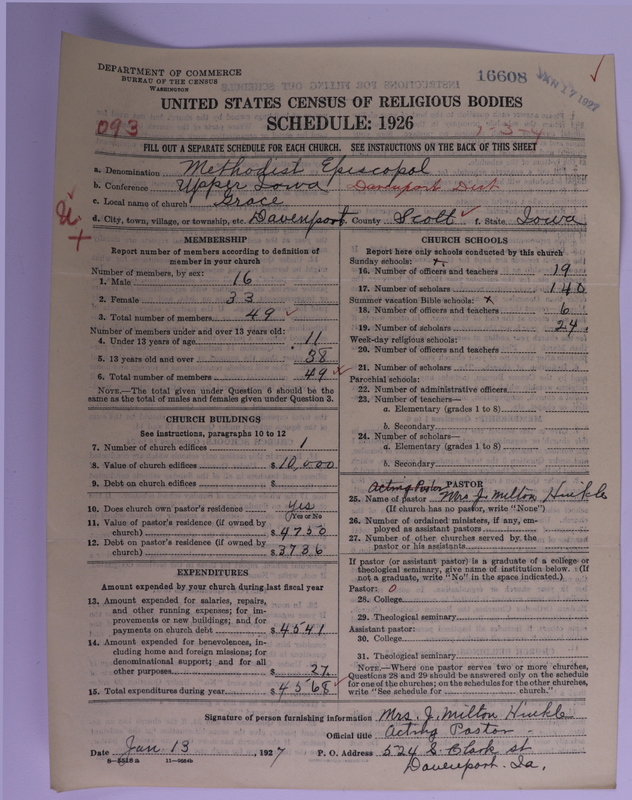 DEPARTMENT OF COMMERCE
BUREAU OF THE CENSUS
WASHINGTON
16608
JAN 17 1927
UNITED STATES CENSUS OF RELIGIOUS BODIES
SCHEDULE: 1926
093
1-3-4
FILL OUT A SEPARATE SCHEDULE FOR EACH CHURCH. SEE INSTRUCTIONS ON THE BACK OF THIS SHEET
a. Denomination Methodist Episcopal
b. Conference Upper Iowa Davenport Dist
c. Local name of church Grace
d. City, town, village, or township, etc. Davenport County Scott f. State Iowa
MEMBERSHIP
Report number of members according to definition of
member in your church
Number of members, by sex:
1. Male 16
2. Female 33
3. Total number of members 49
Number of members under and over 13 years old:
4. Under 13 years of age 11
5. 13 years old and over 38
6. Total number of members 49
NOTE.—The total given under Question 6 should be the
same as the total of males and females given under Question 3.
CHURCH BUILDINGS
See instructions, paragraphs 10 to 12
7. Number of church edifices 1
8. Value of church edifices $10,000
9. Debt on church edifices $
10. Does church own pastor's residence? Yes
(Yes or No)
11. Value of pastor's residence (if owned by
church) $4750
12. Debt on pastor's residence (if owned by
church) $3736
EXPENDITURES
Amount expended by your church during last fiscal year
13. Amount expended for salaries, repairs,
and other running expenses; for im-
provements or new buildings; and for
payments on church debt $4541
14. Amount expended for benevolences, in-
cluding home and foreign missions; for
denominational support; and for all
other purposes $27
15. Total expenditures during year $4568
CHURCH SCHOOLS
Report here only schools conducted by this church
Sunday schools:
16. Number of officers and teachers 19
17. Number of scholars 140
Summer vacation Bible schools:
18. Number of officers and teachers 6
19. Number of scholars 24
Week-day religious schools:
20. Number of officers and teachers
21. Number of scholars
Parochial schools:
22. Number of administrative officers
23. Number of teachers—
a. Elementary (grades 1 to 8)
b. Secondary
24. Number of scholars—
a. Elementary (grades 1 to 8)
b. Secondary
PASTOR
Acting Pastor
25. Name of pastor Mrs J. Milton Hinkle
(If church has no pastor, write "None")
26. Number of ordained ministers, if any, em-
ployed as assistant pastors
27. Number of other churches served by the
pastor or his assistants
If pastor (or assistant pastor) is a graduate of a college or
theological seminary, give name of institution below. (If
not a graduate, write "No" in the space indicated.)
Pastor: 0
28. College
29. Theological seminary
Assistant pastor:
30. College
31. Theological seminary
NOTE.—Where one pastor serves two or more churches,
Questions 28 and 29 should be answered only on the schedule
for one of the churches; on the schedules for the other churches,
write "See schedule for church."
Signature of person furnishing information Mrs. J. Milton Hinkle
Official title Acting Pastor
Date Jan 13, 1927 P. O. Address 524 S. Clark st
Davenport. Ia.
8-5518a 11-9664b